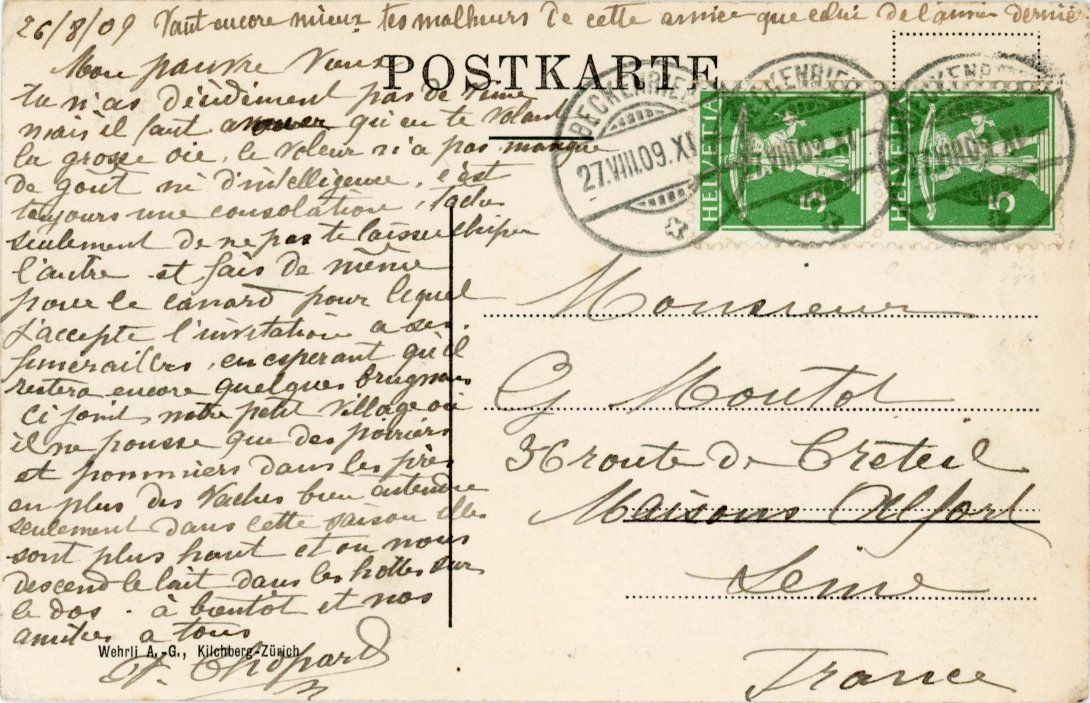 26/8/09 Vaut encore mieux tes malheurs de cette année que celui de l'année dernière
POSTKARTE
Mon pauvre Vieux
tu n'as décidément pas de veine
mais il faut avouer qu'en te volant
la grosse oie, le voleur n'a pas manqué
de goût ni d'intelligence, c'est
toujours une consolation, tache
seulement de ne pas te laisser chiper
l'autre et fais de même
pour le canard pour lequel
j'accepte l'invitation a ses
funerailles, en esperant qu'il
restera encore quelques brugnons
Ci joint notre petit village où
il ne pousse que des poiriers
et pommiers dans les prés
en plus des vaches bien entendu
seulement dans cette saison elles
sont plus haut et on nous
descend le lait dans les hottes sur
le dos. à bientôt et nos
amitiés a tous
Chopard
Wehrli A.-G., Kilchberg-Zürich
BECKENRIED
27.VIII.09.XI
HELVETIA
5
BECKENRIED
27.VIII.09.XI
HELVETIA
5
BECKENRIED
27.VIII.09.XI
Monsieur
G Moutot
36 route de Créteil
Maisons Alfort
Seine
France